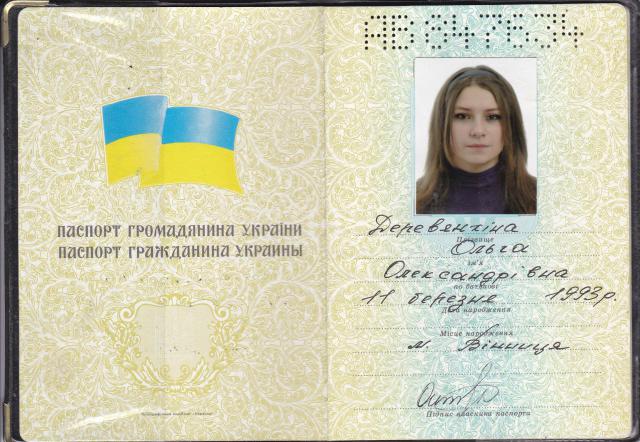 АВ 847634
ПАСПОРТ ГРОМАДЯНИНА УКРАЇНИ
ПАСПОРТ ГРАЖДАНИНА УКРАИНЫ
Деревянгіна
Прізвище
Ольга
Ім'я
Олександрівна
по батькові
11 березня 1993 р.
Дата народження
Місце народження
м. Вінниця
Підпис власника паспорта